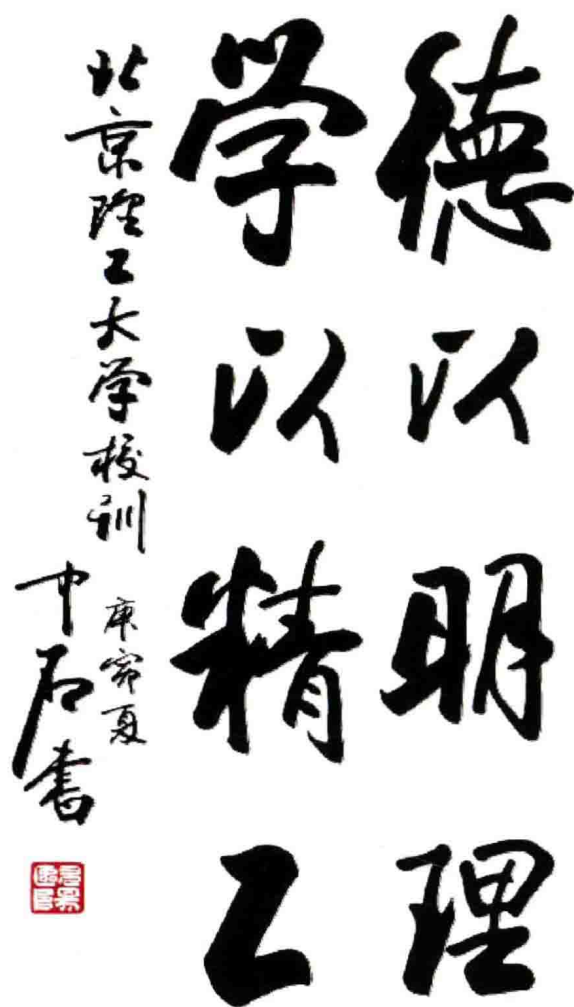 德以明理
学以精工
北京理工大学校训
庚寅夏
中石書